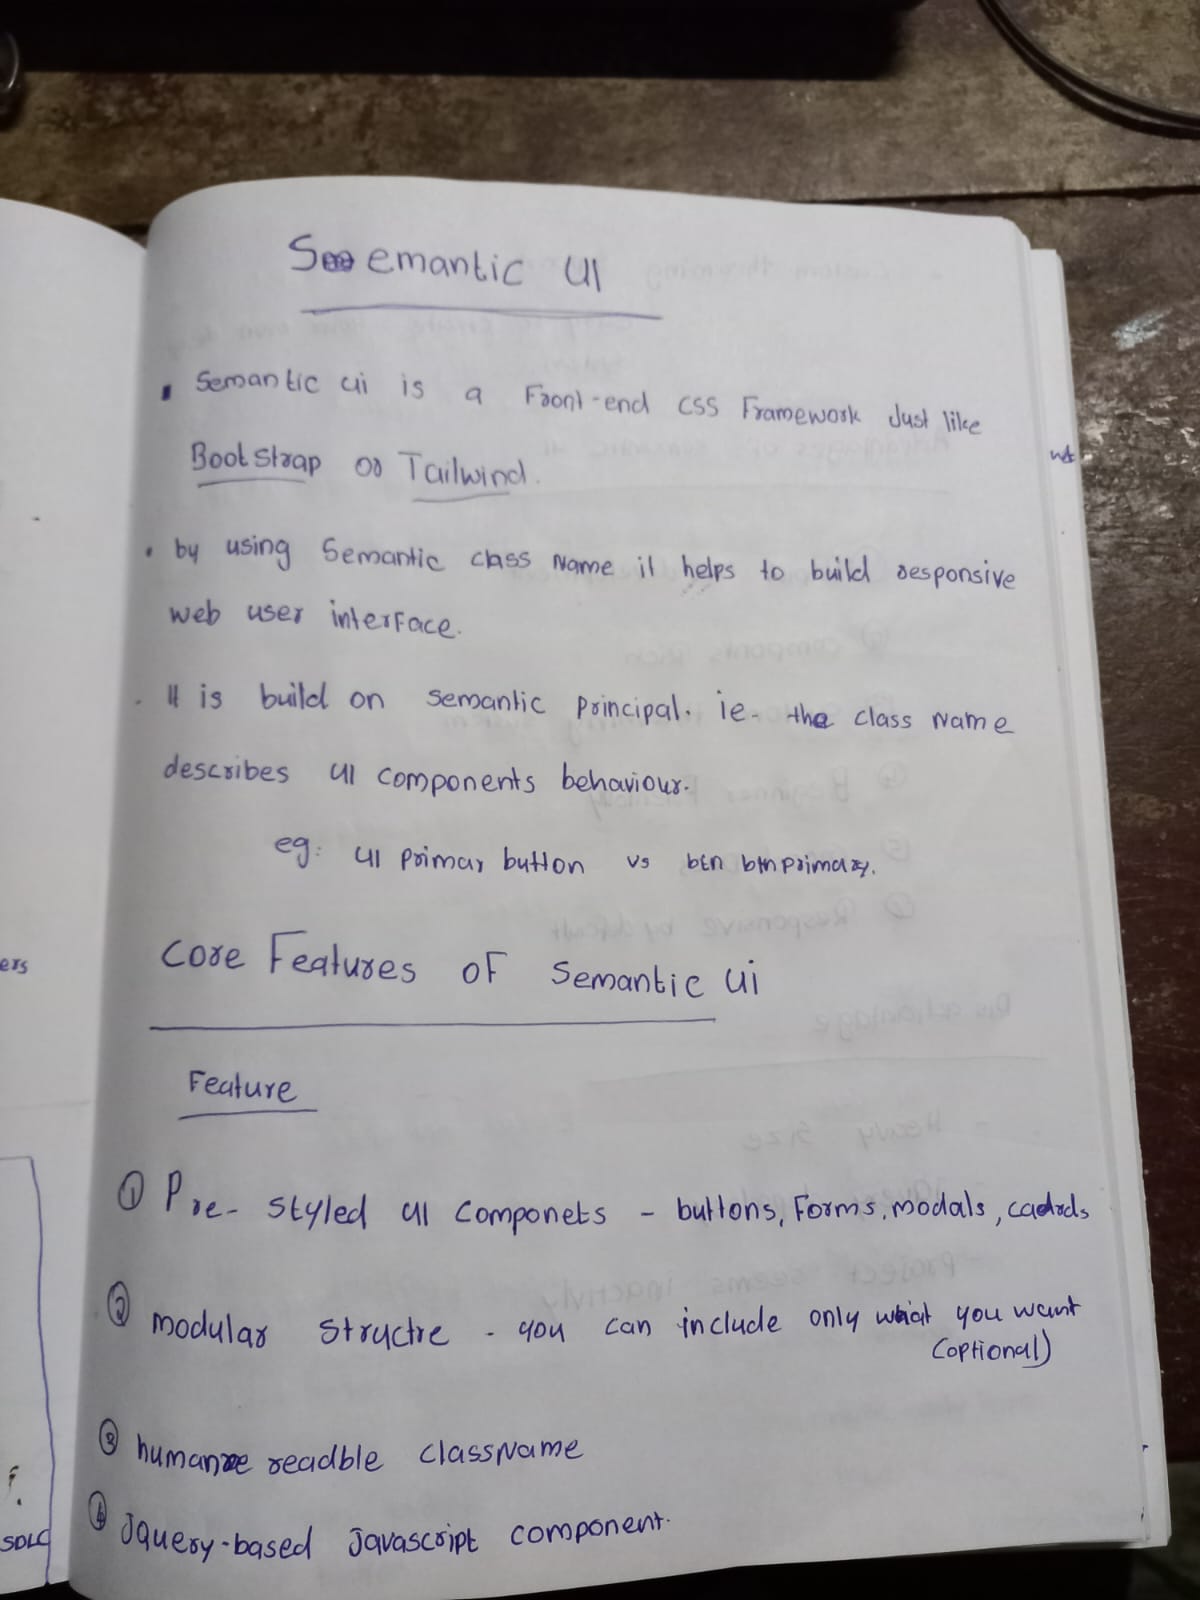 Semantic UI
Semantic ui is a Front-end CSS Framework Just like
BootStrap or Tailwind.
by using Semantic class Name it helps to build responsive
web user interface.
It is build on semantic principal. ie. the class Name
describes UI components behaviour.
eg: UI primary button vs btn btnprimary.
Core Features of Semantic ui
Feature
① Pre-styled UI Componets - buttons, Forms, modals, cards
② modular structre - you can include only what you want
(optional)
③ human readble classname
④ Jquery-based Javascript component.
ers
SDLC